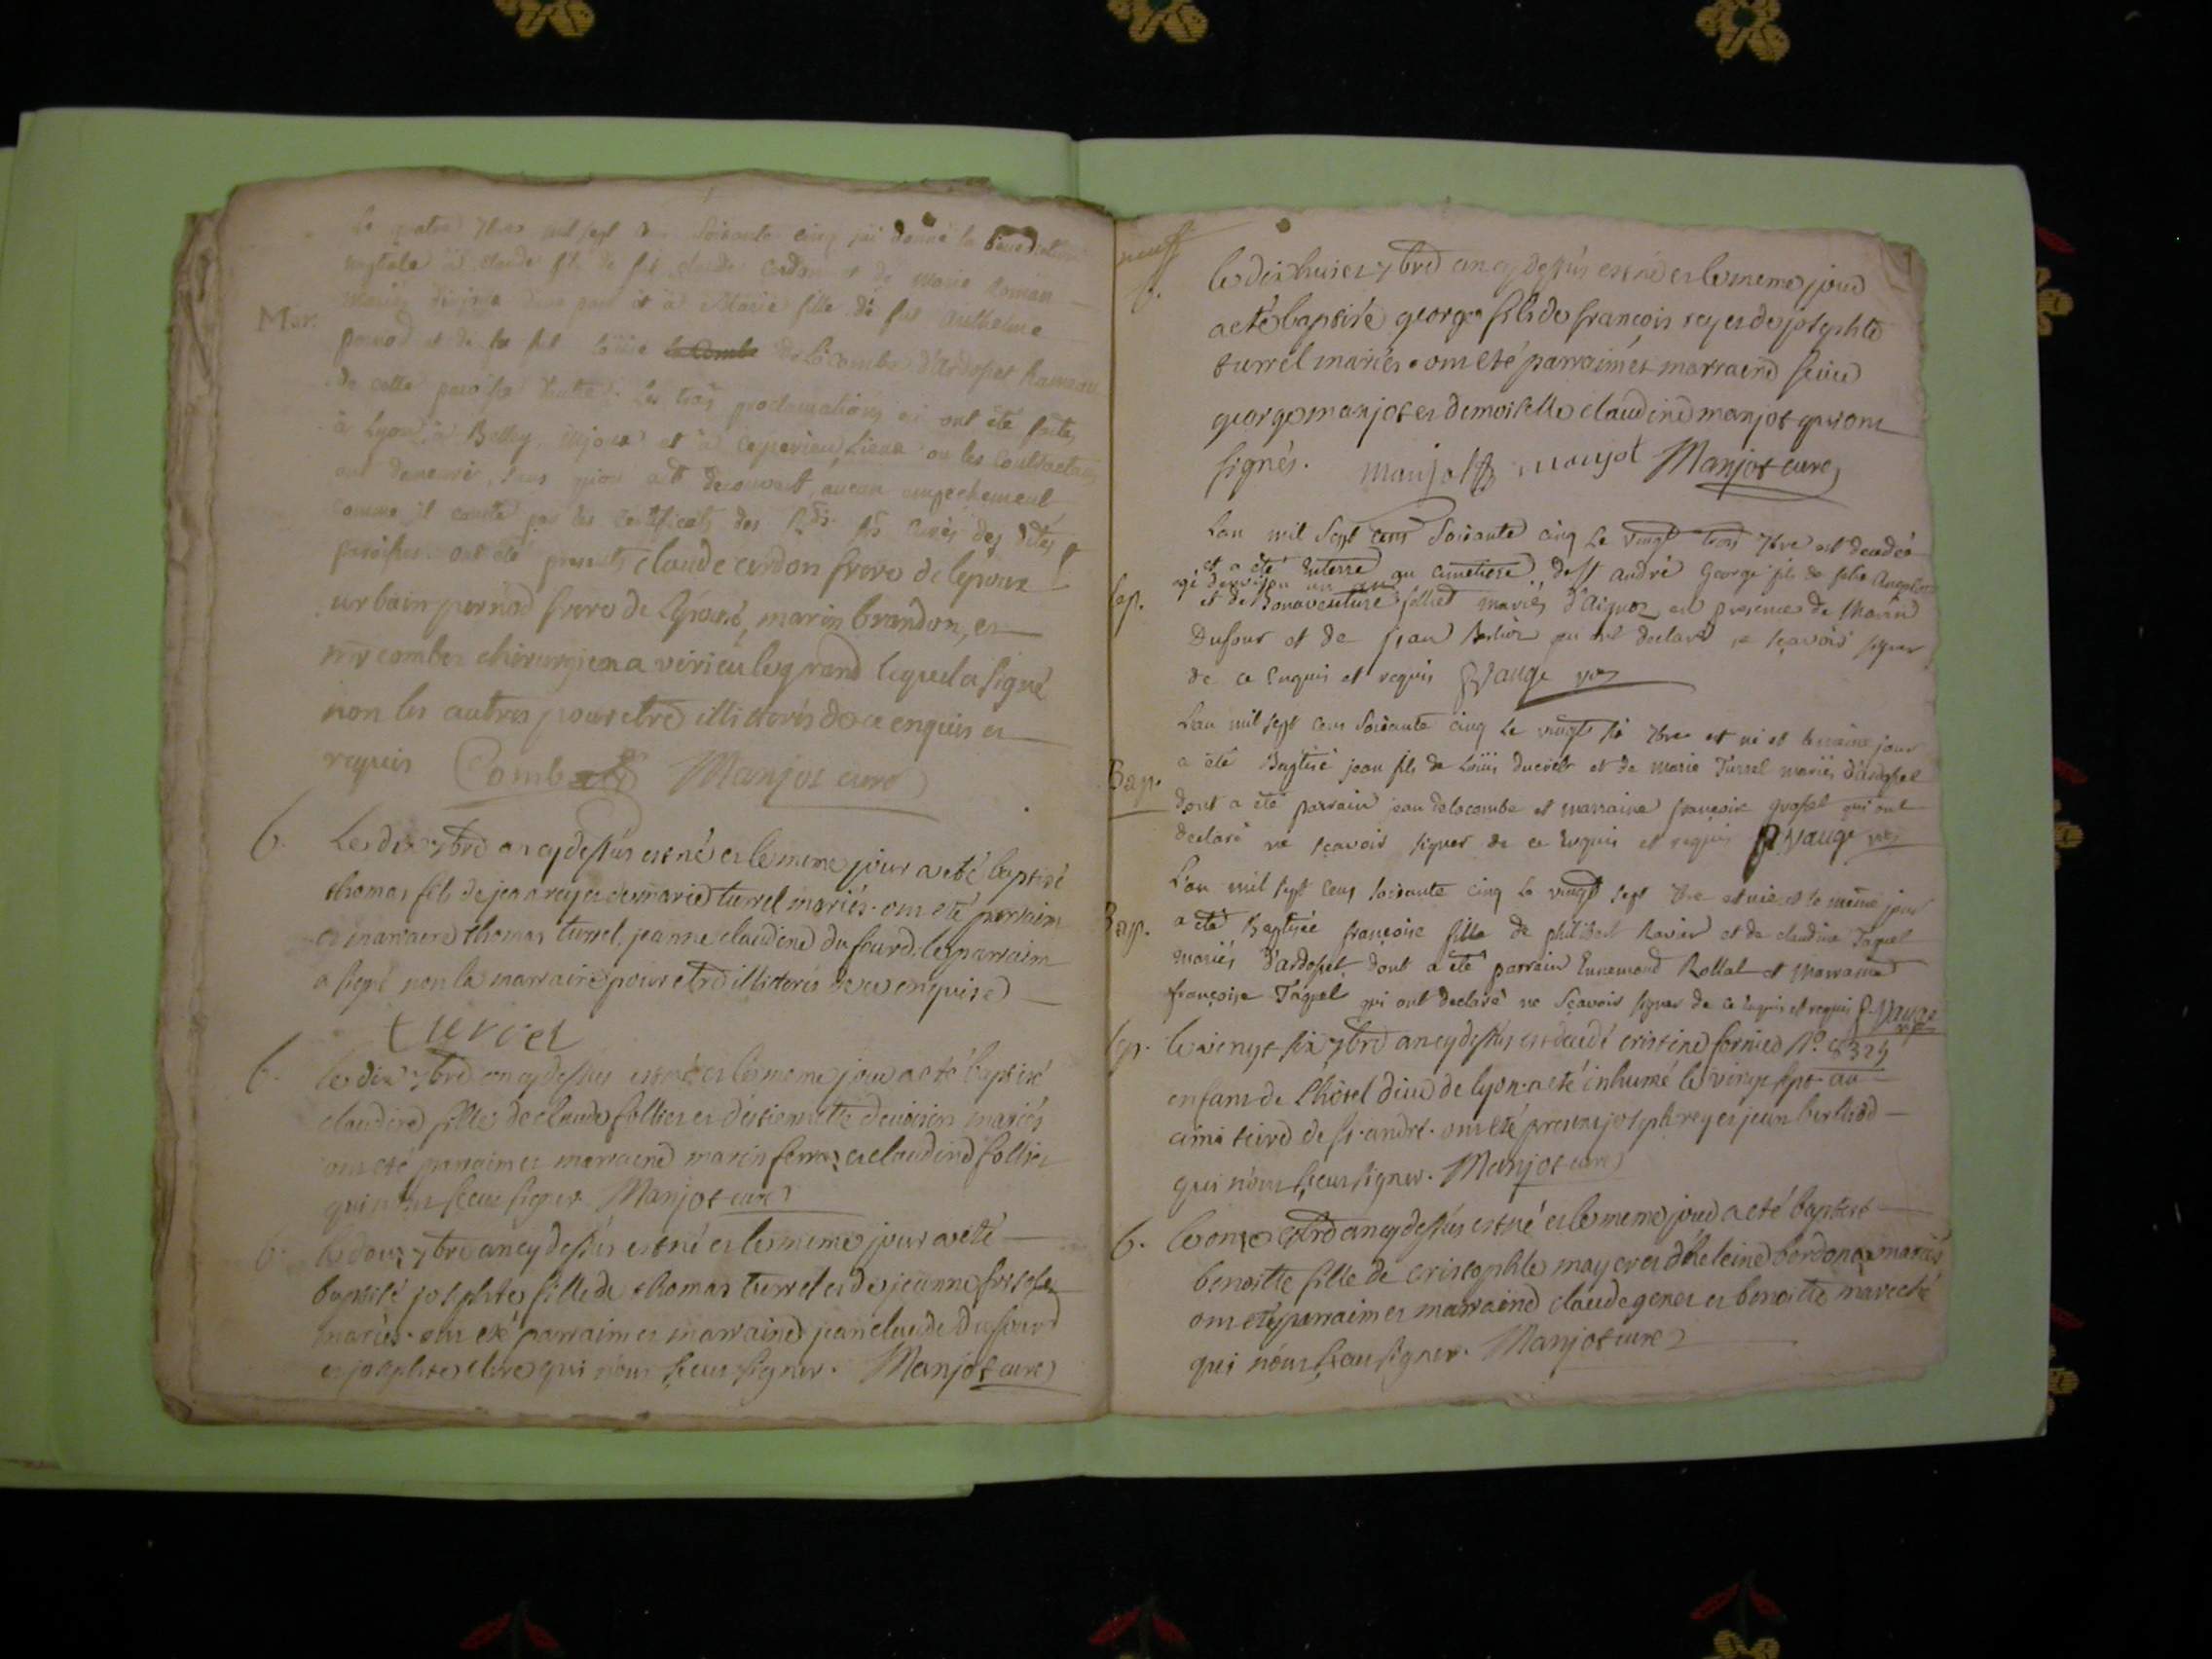 Le quatre 7bre mil sept cens soixante cinq jai donné la benediction
nuptiale à claude fils de feu claude cardon et de marie Romain
mariés d'une part et à Marie fille de feu Anthelme
Mar.
pernod et de feu Louise la Combe de Lacombe d'Ardosset hameau
de cette paroisse d'autre. Les trois proclamations en ont été faites
à Lyon, à Belley, injoux et à Ceyzerieu, Lieux ou les contractans
ont demeuré, sans qu'on ait decouvert aucun empechement
comme il conste par les certificats des Rds srs Curés des dites
paroisses. ont été presents claude cardon frere de lepoux
urbain pernod frere de Lepouse, marin brandon, et
mr combet chirurgien a virieu le grand lequel a signé
non les autres pour etre illitterés de ce enquis et
requis Combet Manjot curé
b. Le dix 7bre an cy dessus est né et le meme jour a eté baptisé
thomas fils de jean rey et de marie turrel mariés. ont eté parraim
et marraine thomas turrel, jeanne claudine du four. le parraim
a signé non la marraine pour etre illitterés de ce enquise
turrel
b. le dix 7bre an cy dessus est né et le meme jour a eté baptisé
claudine fille de claude follier et d'estiennette mariés
ont eté parraim et marraine marin ferraz et claudine follier
qui n'ont sceu signer. Manjot curé
b. le douz 7bre an cy dessus est né et le meme jour a eté
baptisé josephte fille de thomas turrel et de jeanne
mariés. ont eté parraim et marraine jean claude Dufour
et josephte qui n'ont sceu signer. Manjot curé
neuf
b. le dix huict 7bre an cy dessus est né et le meme jour
a eté baptisé george fils de françois rey et de josephte
turrel mariés. ont eté parraim et marraine sieur
george manjot et demoiselle claudine manjot qui ont
signés. manjot manjot Manjot curé
Lan mil sept cens soixante cinq le vingt trois 7bre est decedé
et a été enterré au cimetiere de st andré George fils de
agé d'environ un an
sep. et de Bonaventure folliet mariés d'Aignoz en presence de Marin
Dufour et de jean qui ont declaré ne sçavoir signer
de ce enquis et requis Vauge
Lan mil sept cens soixante cinq le vingt six 7bre est né et le même jour
Bap. a été Baptisé jean fils de Louis et de marie Turrel mariés d'ardosset
dont a été parrain jean delacombe et marraine françoise grosset qui ont
declaré ne sçavoir signer de ce enquis et requis Vauge
L'an mil sept cens soixante cinq le vingt sept 7bre est née et le même jour
Bap. a été Baptisée françoise fille de philibert Ravier et de claudine Taquet
mariés d'ardosset dont a été parrain Ennemond Rollat et marraine
françoise Taquet qui ont declaré ne sçavoir signer de ce enquis et requis Vauge
sep. le vingt six 7bre an cy dessus est decedé cristine fornier No. 8324
enfant de l'hotel dieu de lyon. a eté inhumé le vingt sept au
cimitiere de st. andré. ont eté presens joseph rey et jean
qui n'ont sceu signer. Manjot curé
b. le onze an cy dessus est né et le meme jour a eté baptisé
benoitte fille de cristophle mayer et d'heleine mariés
ont eté parraim et marraine claude genet et benoitte mareché
qui n'ont sceu signer. Manjot curé